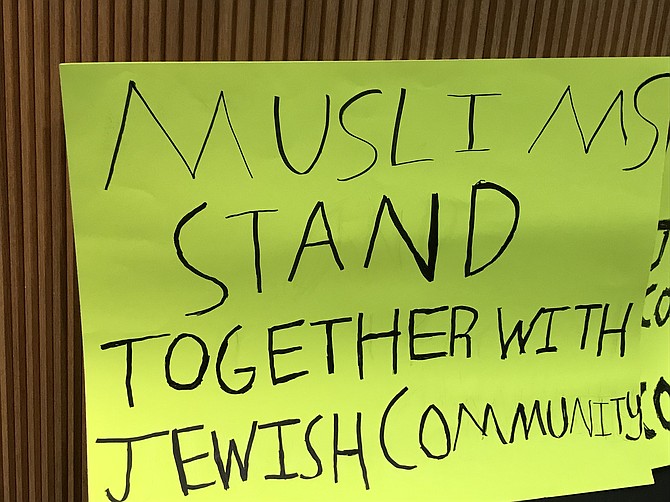 MUSLIMS
STAND
TOGETHER WITH
JEWISH COMMUNITY.